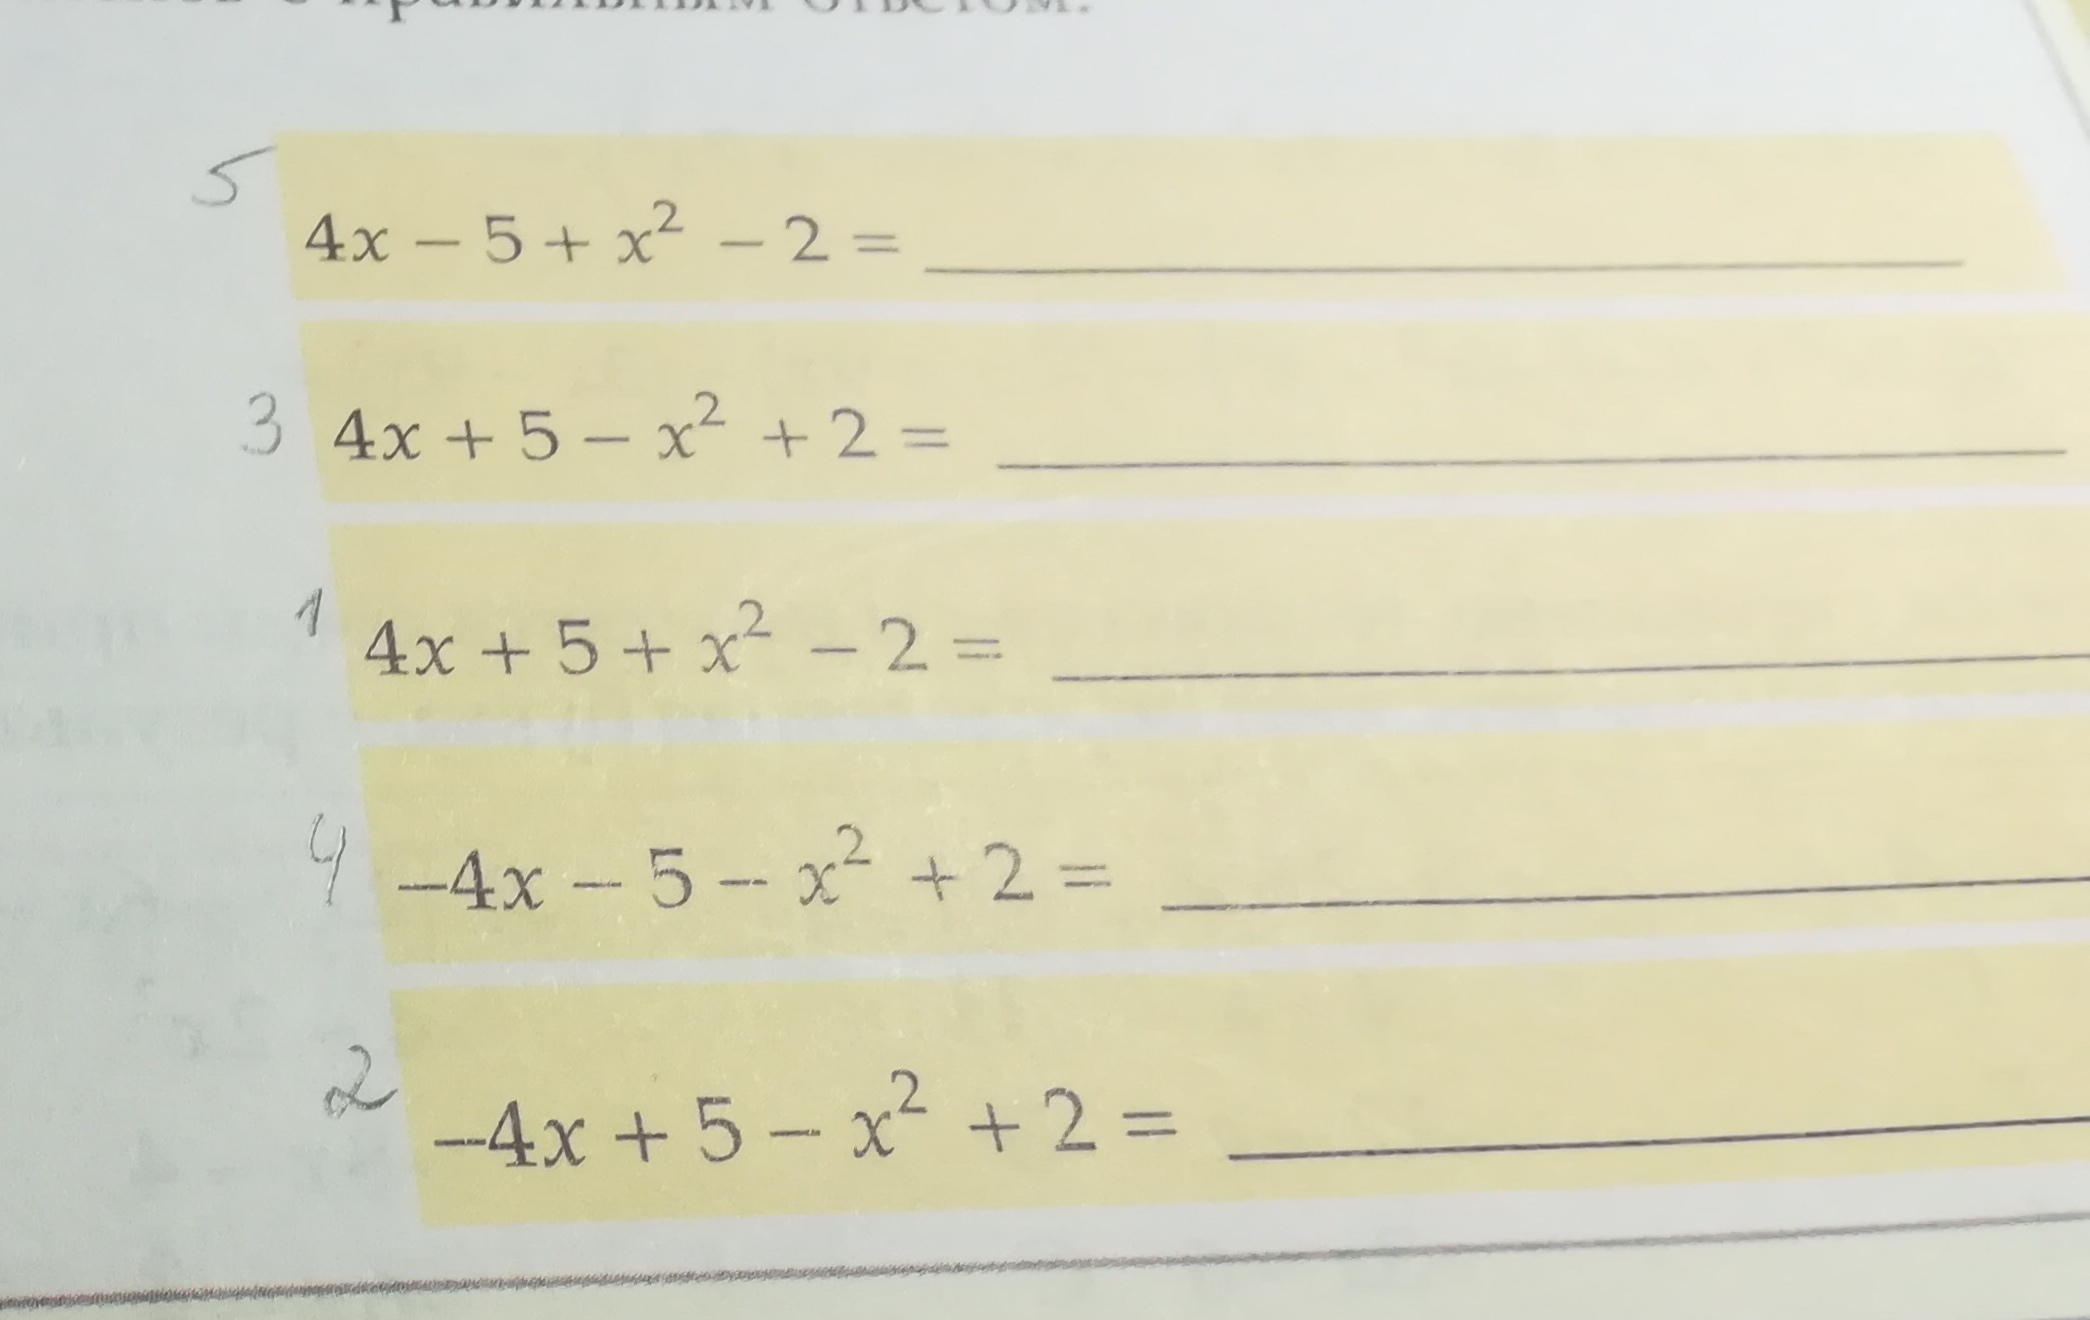 правильным ответом.
5 4x − 5 + x² − 2 = ____
3 4x + 5 − x² + 2 = ____
1 4x + 5 + x² − 2 = ____
4 −4x − 5 − x² + 2 = ____
2 −4x + 5 − x² + 2 = ____